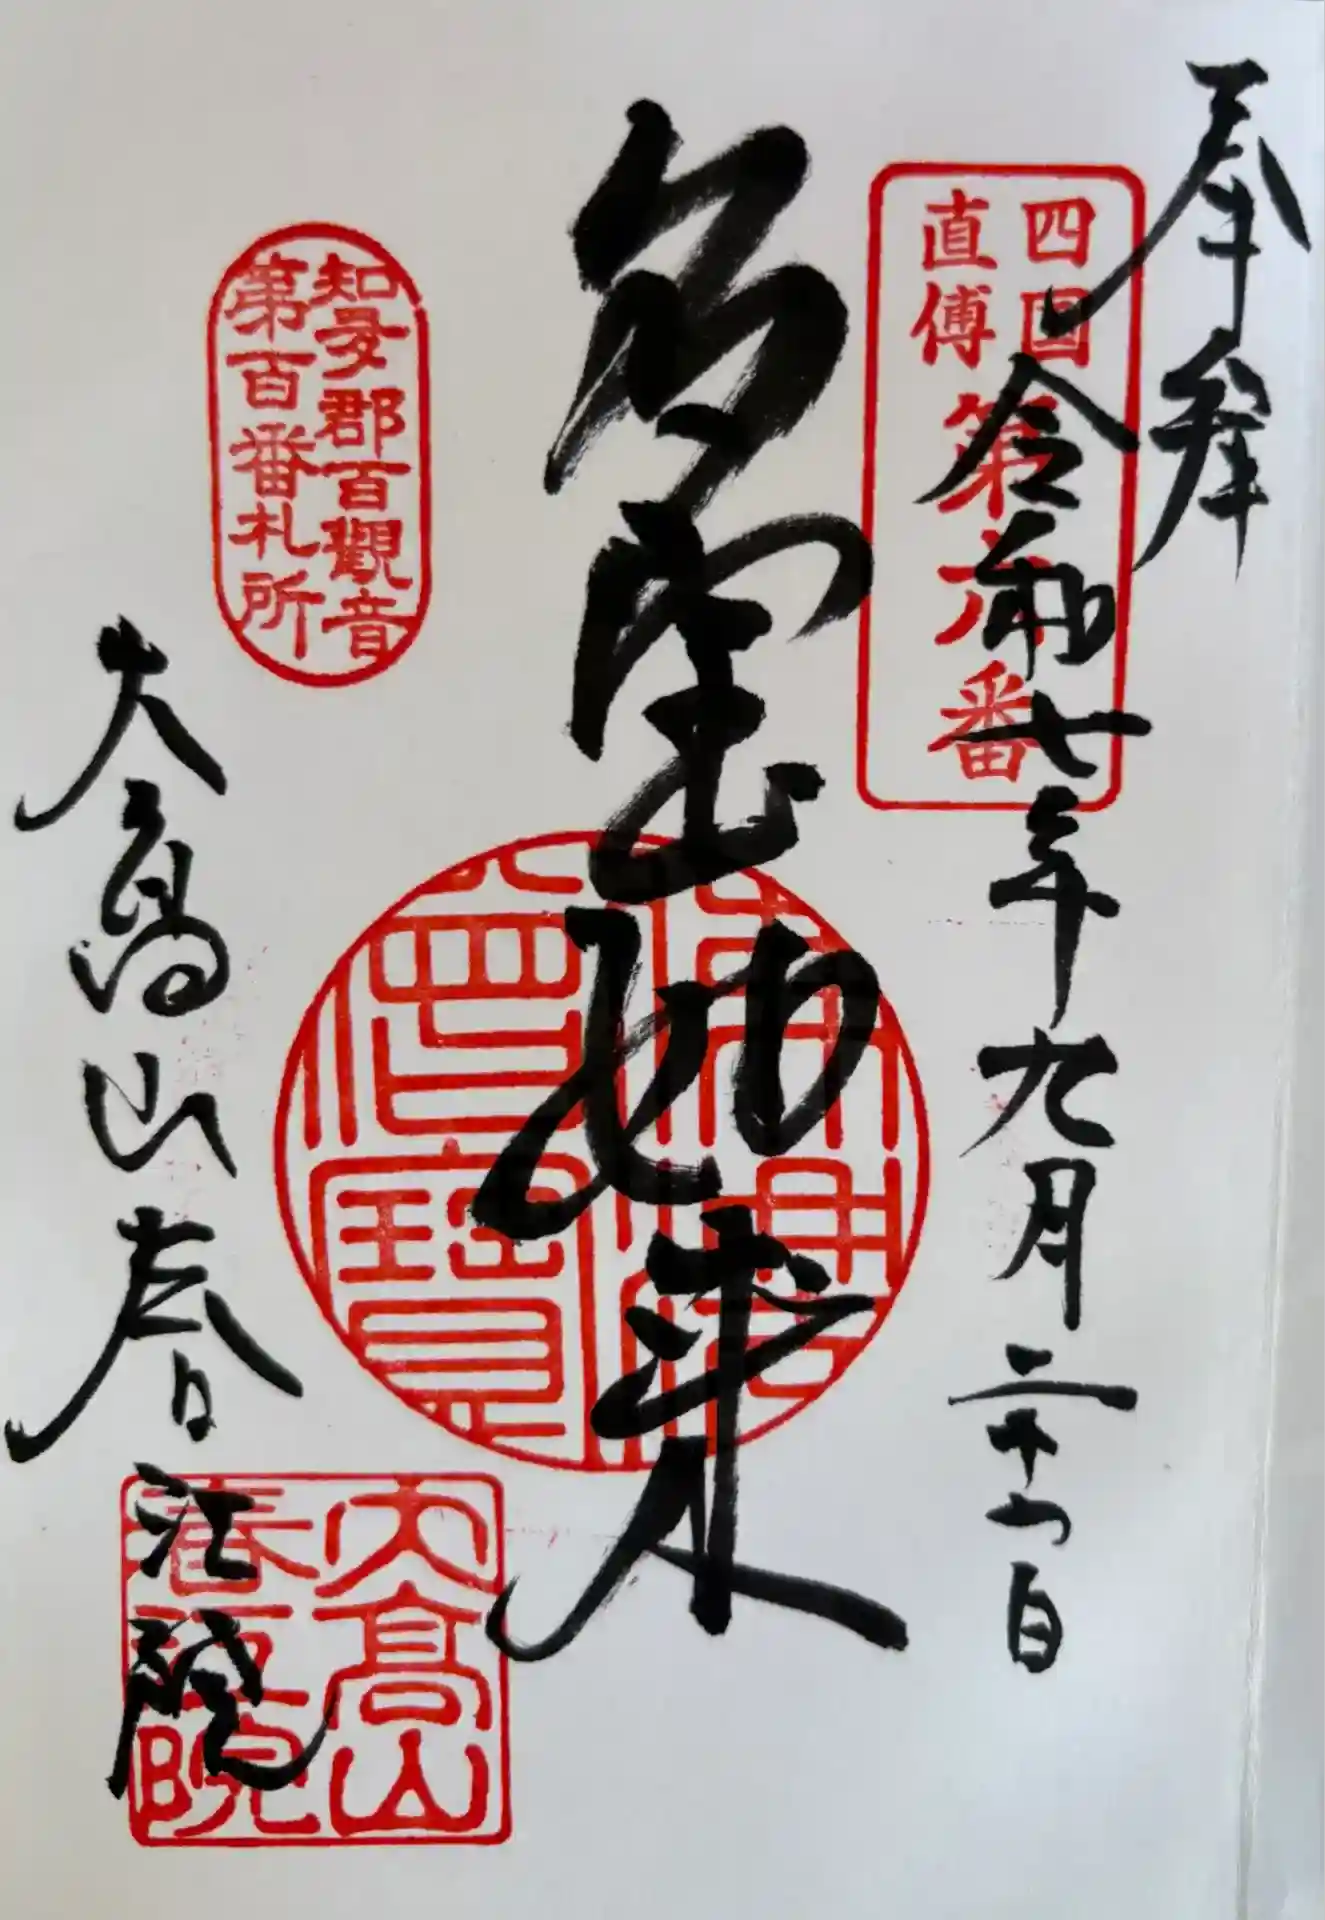 奉拜
令和七年九月二十八日
四國
直傳
第六番
多宝如来
知多郡百觀音
第百番札所
大高山春江院
大高山
春江院